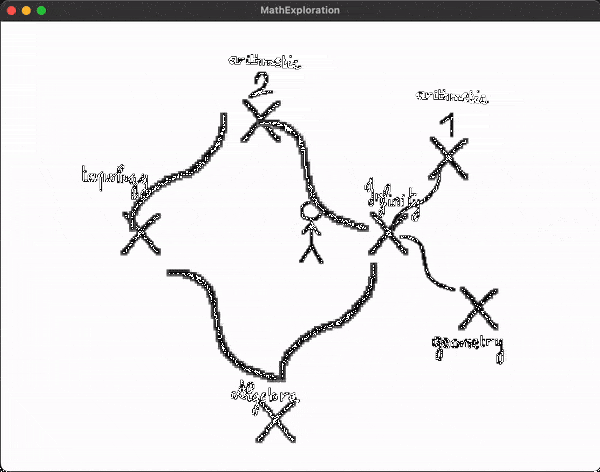 MathExploration
arithmetic
2
arithmetic
1
topology
Infinity
geometry
Algebra